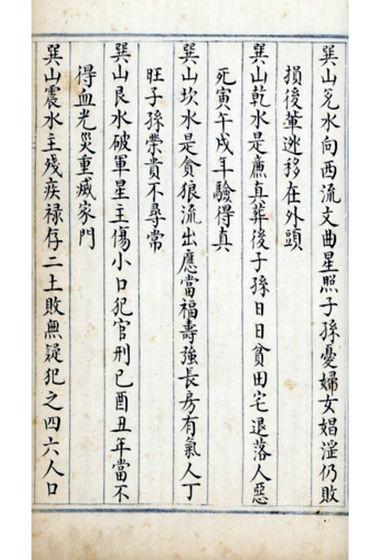 巽山兌水向西流文曲星照子孫憂婦女娼淫仍敗
損後輩迯移在外頭
巽山乾水是廉真葬後子孫日日貧田宅退落人惡
死寅午戌年驗得真
巽山坎水是貪狼流出應當福壽強長房有氣人丁
旺子孫榮貴不尋常
巽山艮水破軍星主傷小口犯官刑巳酉丑年當不
得血光災重滅家門
巽山震水主殘疾禄存二土敗無疑犯之四六人口